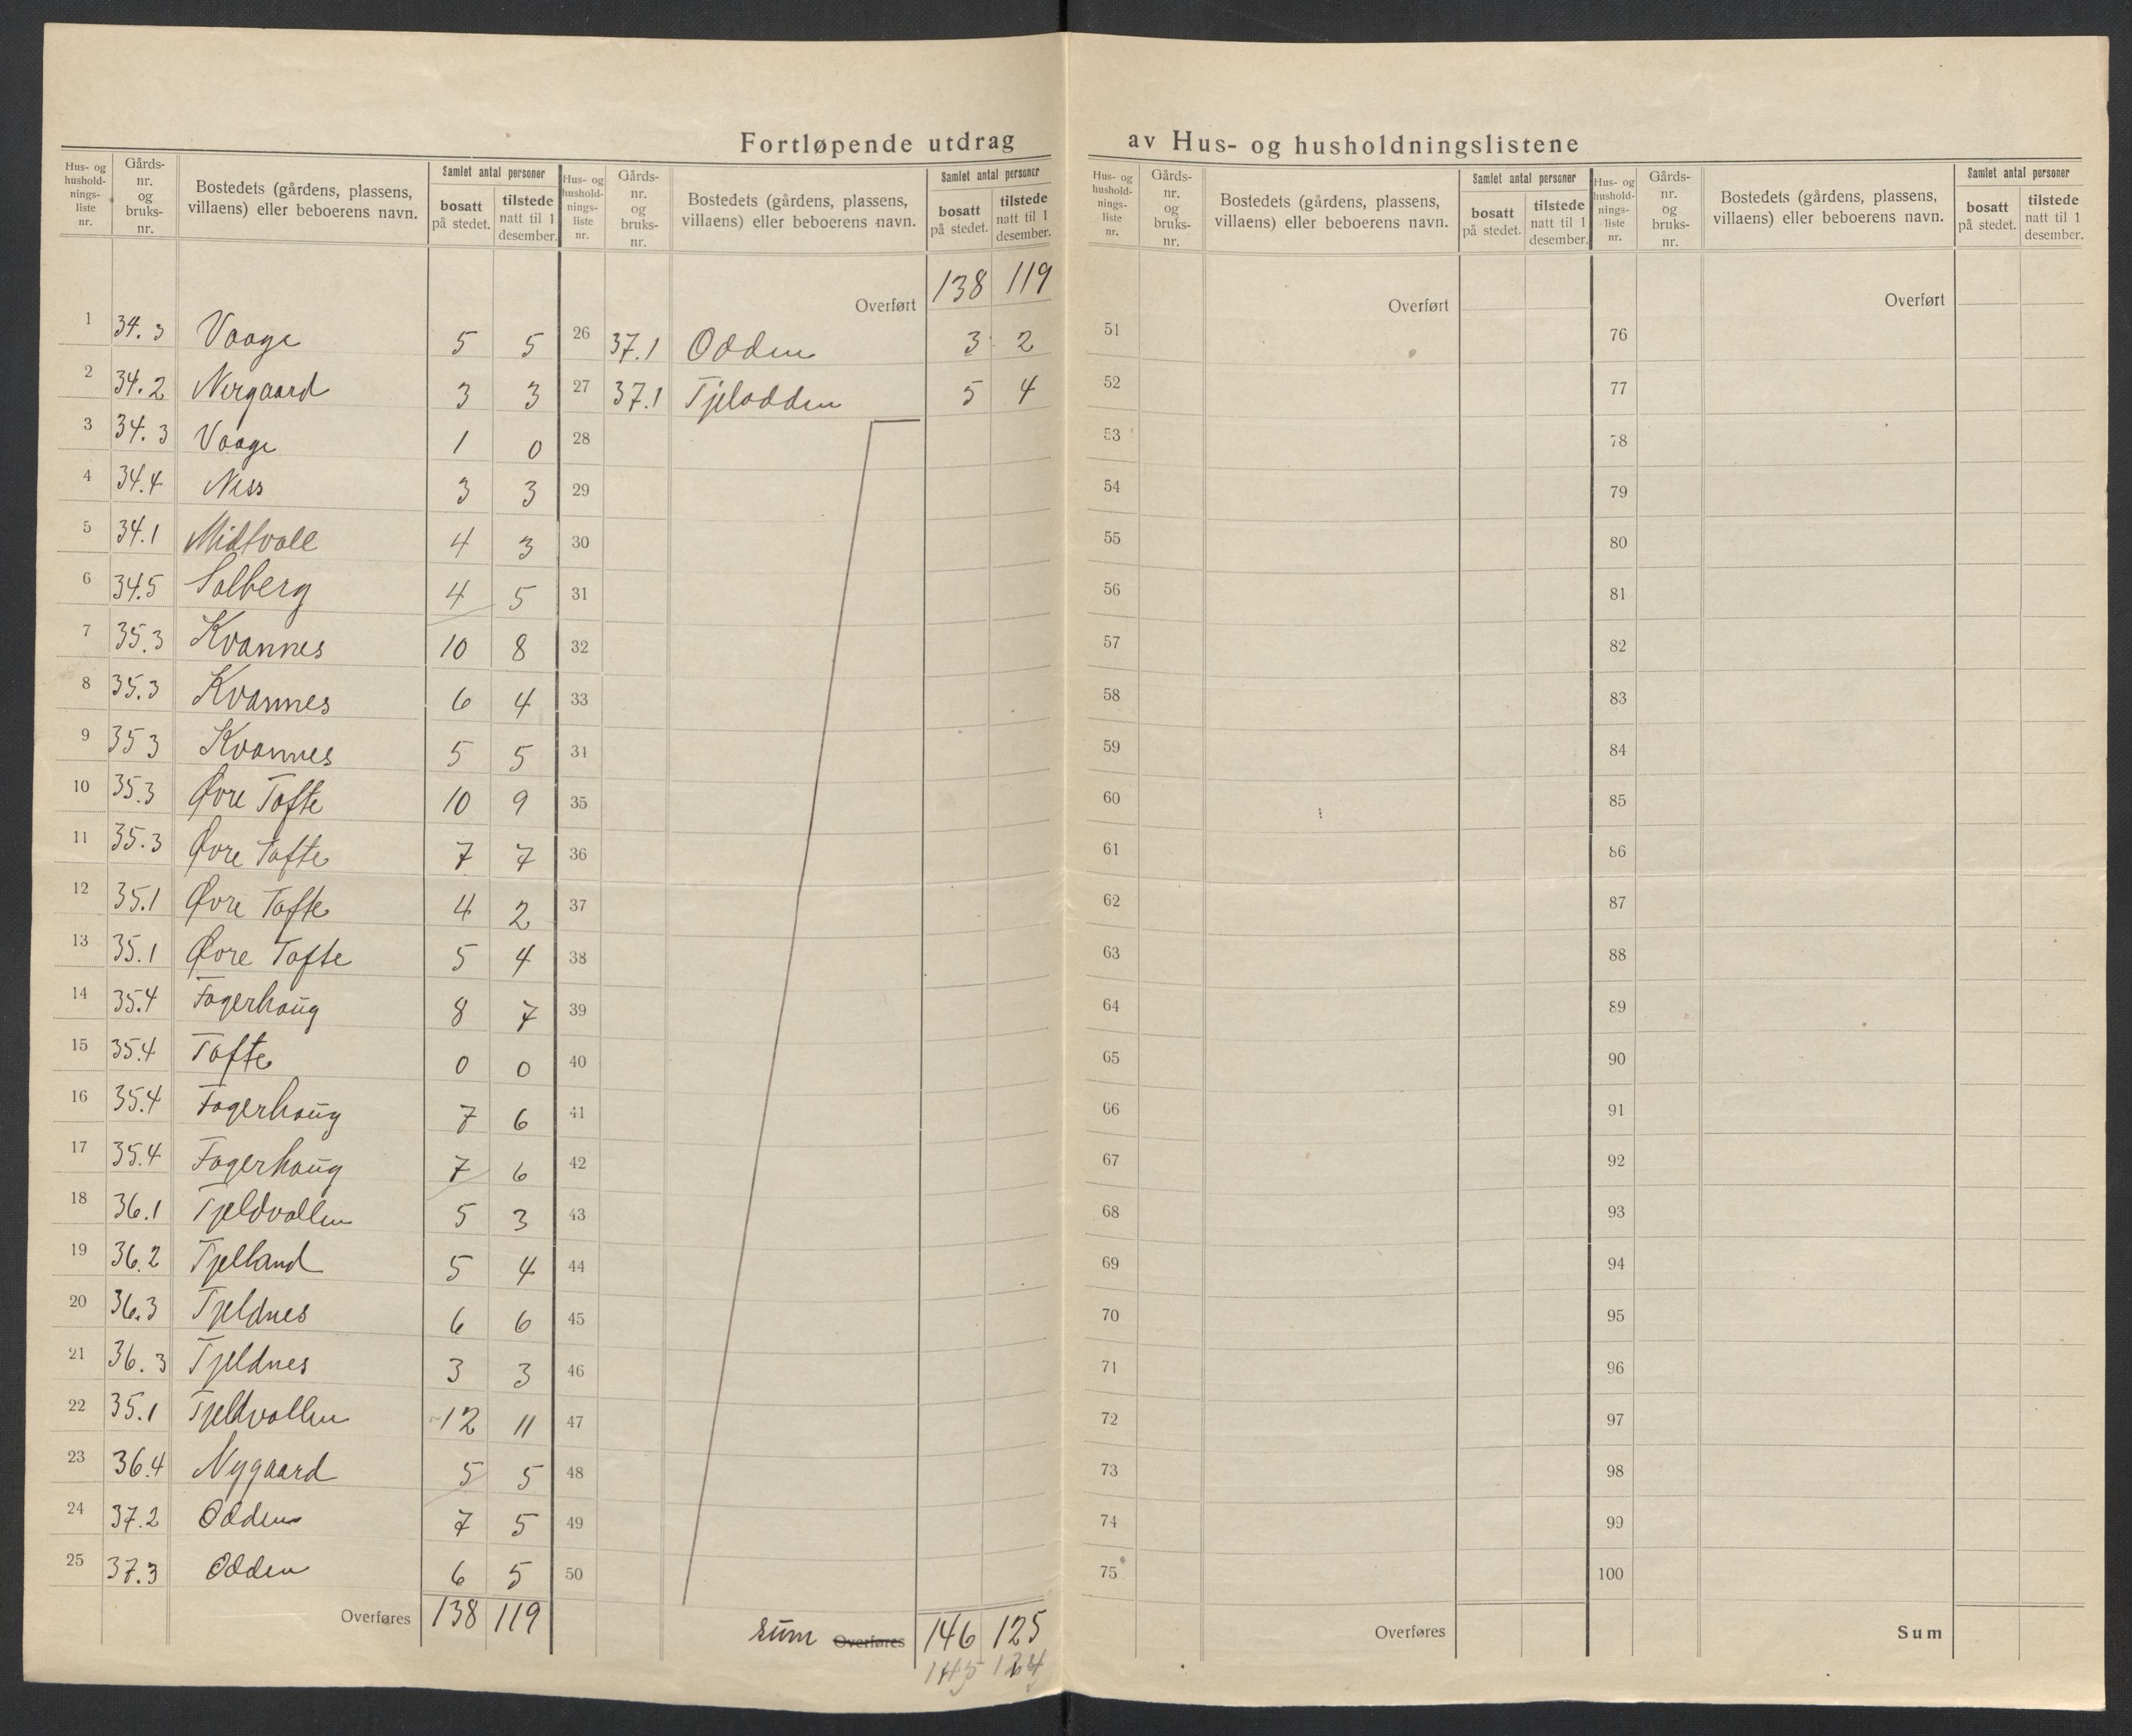 Fortløpende utdrag av Hus- og husholdningslistene
Hus- og hushold- nings- liste nr. | Gårds- nr. og bruks- nr. | Bostedets (gårdens, plassens, villaens) eller beboerens navn. | Samlet antal personer | bosatt på stedet. | tilstede natt til 1 desember.
1 34.3 Vaage 5 5
2 34.2 Nergaard 3 3
3 34.3 Vaage 1 0
4 34.4 Ness 3 3
5 34.1 Midtvoll 4 3
6 34.5 Solberg 4 5
7 35.3 Kvannes 10 8
8 35.3 Kvannes 6 4
9 35 3 Kvannes 5 5
10 35.3 Øvre Tofte 10 9
11 35.3 Øvre Tofte 7 7
12 35.1 Øvre Tofte 4 2
13 35.1 Øvre Tofte 5 4
14 35.4 Fagerhaug 8 7
15 35.4 Tofte 0 0
16 35.4 Fagerhaug 7 6
17 35.4 Fagerhaug 7 6
18 36.1 Tjeldvollen 5 3
19 36.2 Tjelland 5 4
20 36.3 Tjeldnes 6 6
21 36.3 Tjeldnes 3 3
22 35.1 Tjeldvollen 12 11
23 36.4 Nygaard 5 5
24 37.2 Odden 7 5
25 37.3 Odden 6 5
Overføres 138 119
Hus- og hushold- nings- liste nr. | Gårds- nr. og bruks- nr. | Bostedets (gårdens, plassens, villaens) eller beboerens navn. | Samlet antal personer | bosatt på stedet. | tilstede natt til 1 desember.
Overført 138 119
26 37.1 Odden 3 2
27 37.1 Tjelodden 5 4
28
29
30
31
32
33
31
35
36
37
38
39
40
41
42
43
44
45
46
47
48
49
50
sum Overføres 146 125
145 124
Hus- og hushold- nings- liste nr. | Gårds- nr. og bruks- nr. | Bostedets (gårdens, plassens, villaens) eller beboerens navn. | Samlet antal personer | bosatt på stedet. | tilstede natt til 1 desember.
Overført
51
52
53
54
55
56
57
58
59
60
61
62
63
64
65
66
67
68
69
70
71
72
73
74
75
Overføres
Hus- og hushold- nings- liste nr. | Gårds- nr. og bruks- nr. | Bostedets (gårdens, plassens, villaens) eller beboerens navn. | Samlet antal personer | bosatt på stedet. | tilstede natt til 1 desember.
Overført
76
77
78
79
80
81
82
83
84
85
86
87
88
89
90
91
92
93
94
95
96
97
98
99
100
Sum